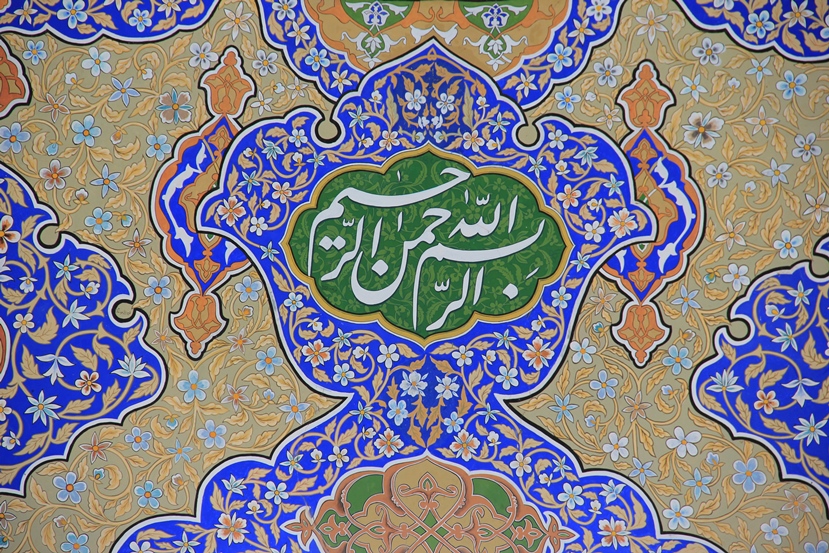 بِسم الله الرَّحمٰن الرَّحیم